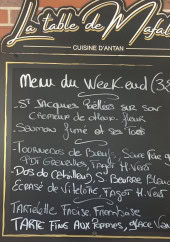 La table de Mafal
CUISINE D'ANTAN
Menu du Week-end (38
St Jacques Poêlées sur son
crémeux de choux fleur
Saumon fumé et ses Toasts
Tournedos de Boeuf, Sauce
Grenailles, Fagot H. Vert
Dos de Cabillaud, St Beurre Blanc
Ecrasé de Vitelote, Fagot H. Vert
Tartelette Facise Framboise
Tarte Fine aux Pommes, glace Van